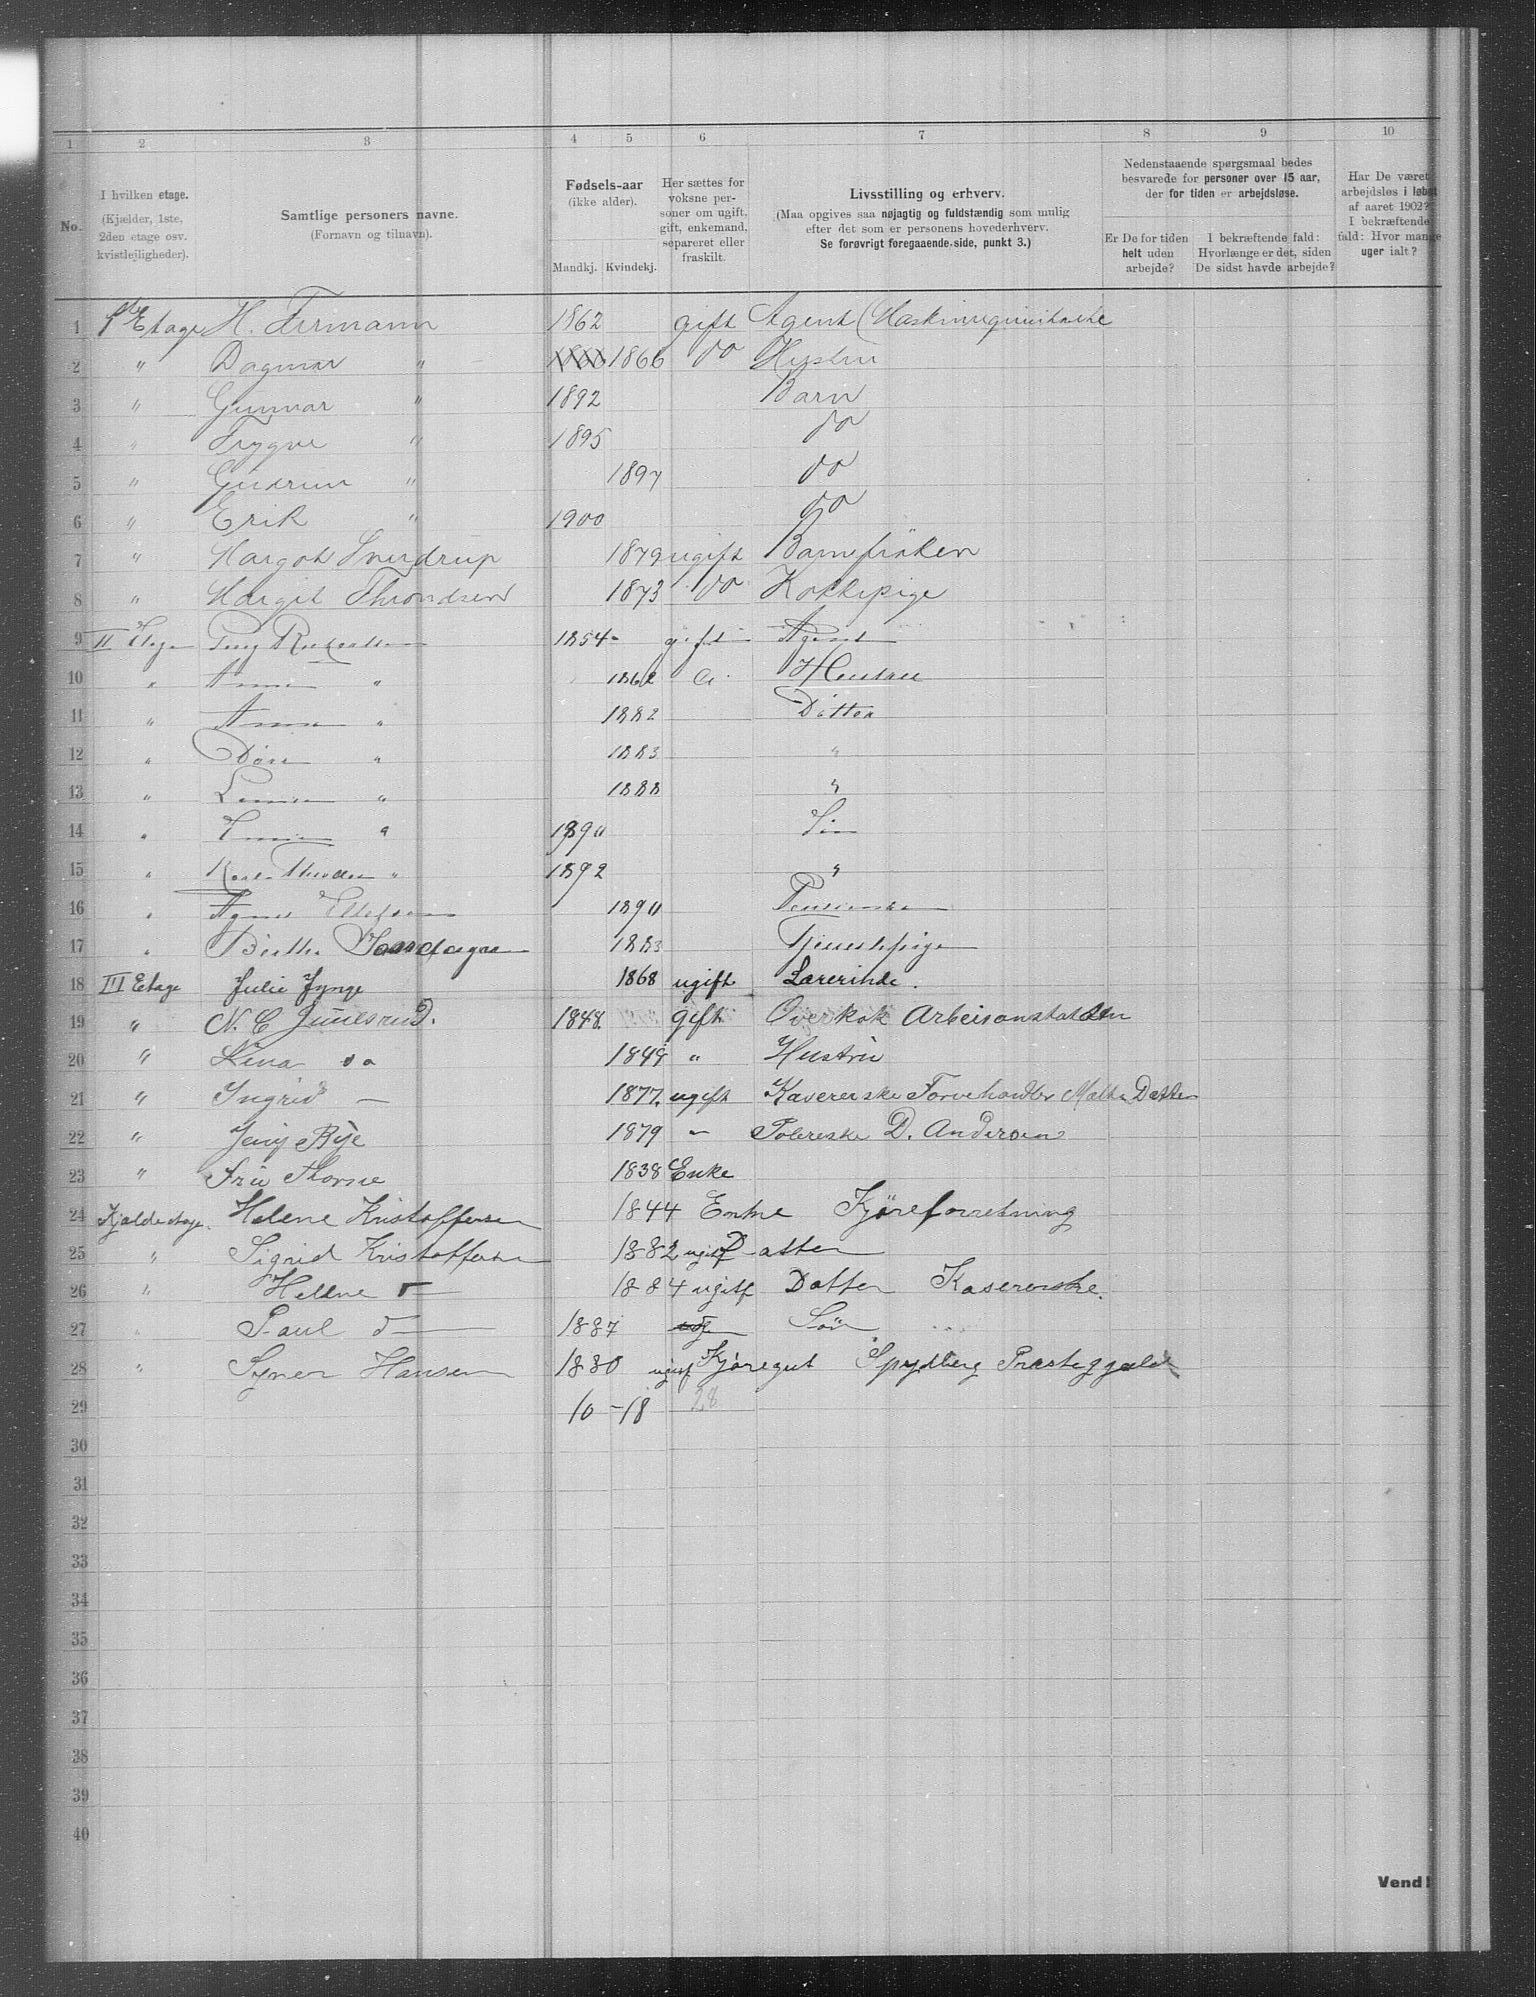 1 2 3 4 5 6 7 8 9 10
No.
I hvilken etage.
(Kjælder, 1ste,
2den etage osv.
kvistlejligheder).
Samtlige personers navne.
(Fornavn og tilnavn).
Fødsels-aar
(ikke alder).
Mandkj. Kvindekj.
Her sættes for
voksne per-
soner om ugift,
gift, enkemand,
separeret eller
fraskilt.
Livsstilling og erhverv.
(Maa opgives saa nøjagtig og fuldstændig som mulig
efter det som er personens hovederhverv.
Se forøvrigt foregaaende side, punkt 3.)
Nedenstaaende spørgsmaal bedes
besvarede for personer over 15 aar,
der for tiden er arbejdsløse.
Er De for tiden
helt uden
arbejde?
I bekræftende fald:
Hvorlænge er det, siden
De sidst havde arbejde?
Har De været
arbejdsløs i løbet
af aaret 1902?
I bekræftende
fald: Hvor mange
uger ialt?
1 1ste Etage H. Firmann 1862 gift Agent
2 " Dagmar " 1866 do Hustru
3 " Gunnar " 1892 Barn
4 " Trygve " 1895 do
5 " Gudrun " 1897 do
6 " Erik " 1900 do
7 " Margot Sverdrup 1879 ugift Barnefrøken
8 " Margit Throndsen 1873 do Kokkepige
9 II Etage 1854 gift Agent
10 " Anna " 1862 Hustru
11 " Anna " 1882 Datter
12 " " 1883 "
13 " " 1888 "
14 " " 1890 Søn
15 " " 1892 "
16 " Agnes Ellefsen 1890
17 " 1883 Tjenestepige
18 III Etage Julie Jynge 1868 ugift Lærerinde.
19 " N. C. Juulsrud. 1848. gift Overkok Arbeisanstalten
20 " Lina do 1849 " Hustru
21 " Ingrid — 1877. ugift Kasererske Farvehandler Datter
22 " Jeny Rye 1879 " D. Andersen
23 " Fru Thorne 1838 Enke
24 Kjælderetage. Helene Kristoffersen 1844 Enke Kjøreforretning
25 " Sigrid Kristoffersen 1882 ugift Datter
26 " Helene 1884 ugift Datter Kasererske.
27 " Paul d— 1887 Søn
28 " Syner Hansen 1880 ugift Kjøregut Spydberg Præsteggæld
29 10 - 18 28
30
31
32
33
34
35
36
37
38
39
40
Vend!